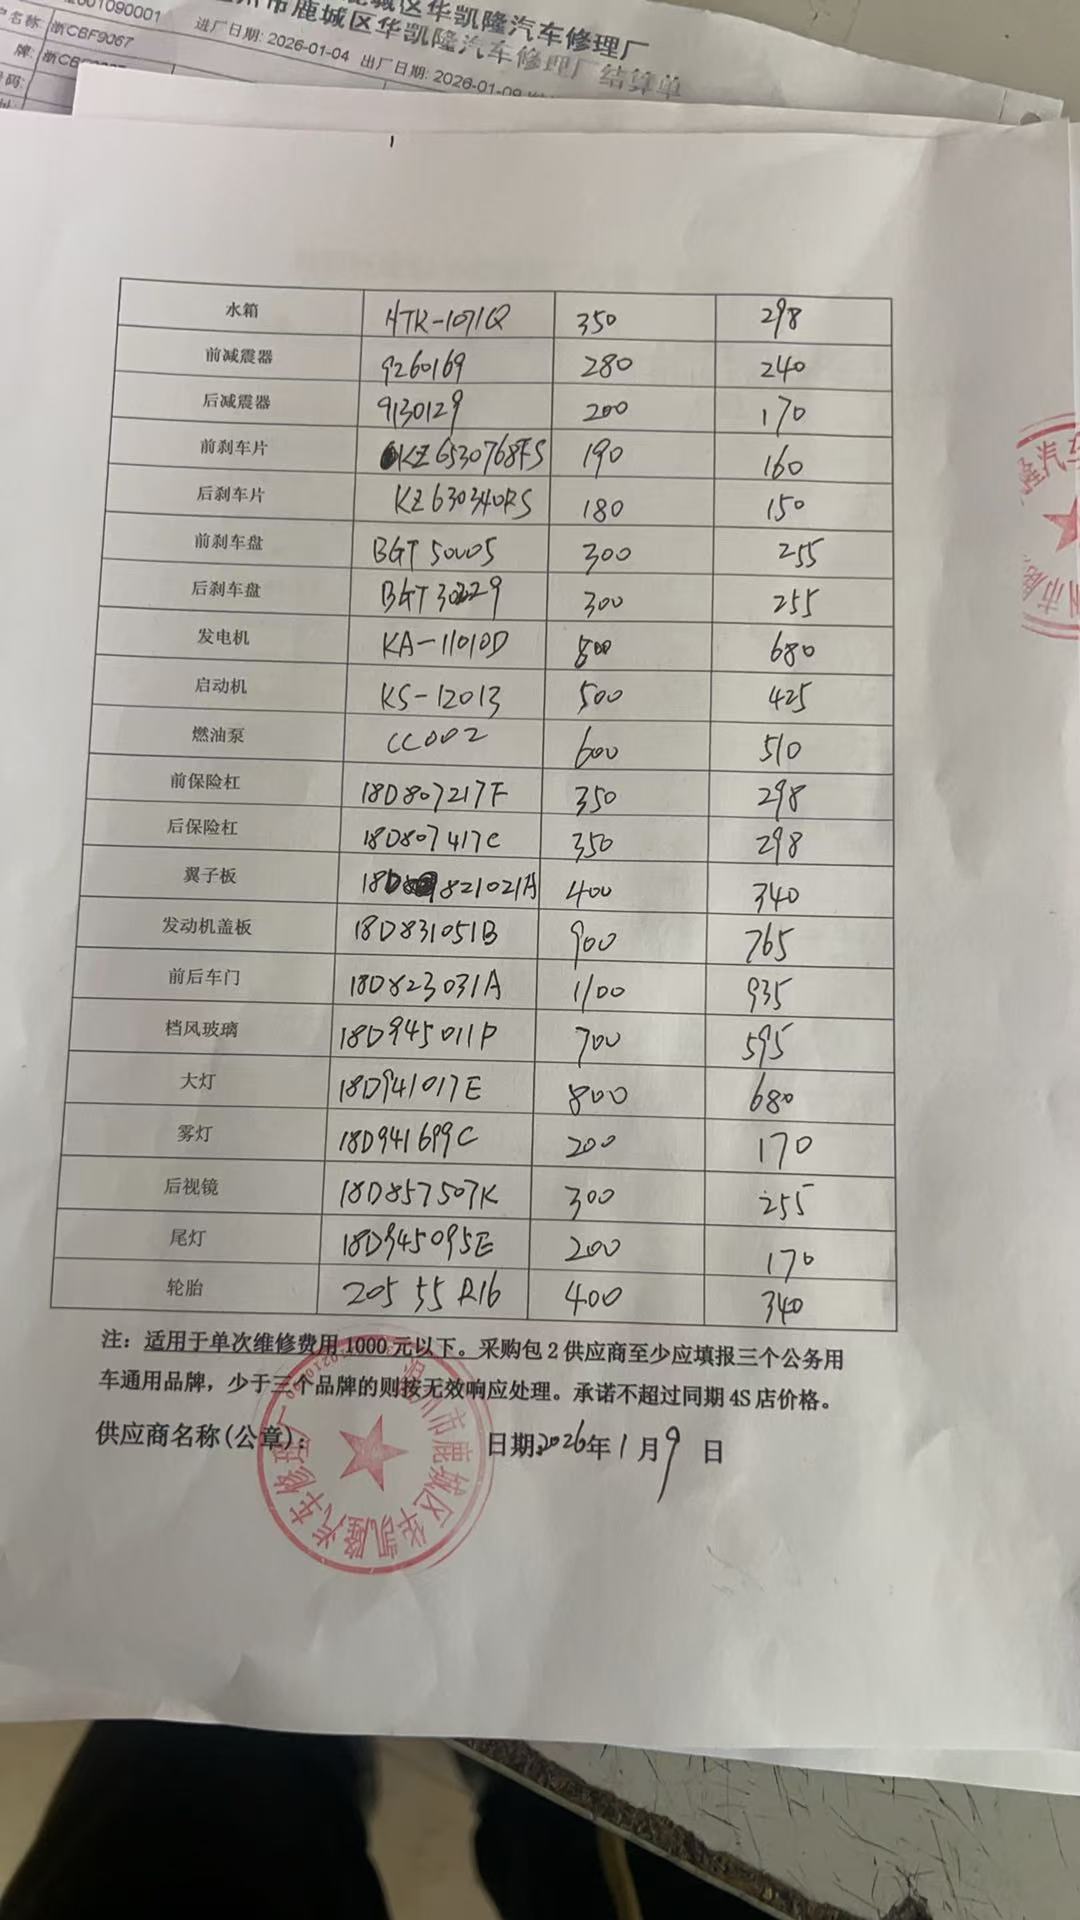 城区华凯隆汽车修理厂
州市鹿城区华凯隆汽车修理厂结算单
001090001 进厂日期: 2026-01-04 出厂日期: 2026-01-09
户名称 浙CBF9067
牌: 浙CBF
号码:
水箱 HTK-1071Q 350 298
前减震器 9260169 280 240
后减震器 9130129 200 170
前刹车片 KZ6530768FS 190 160
后刹车片 KZ630340RS 180 150
前刹车盘 BGT50005 300 255
后刹车盘 BGT30229 300 255
发电机 KA-11010D 800 680
启动机 KS-12013 500 425
燃油泵 CC002 600 510
前保险杠 18D807217F 350 298
后保险杠 18D807417C 350 298
翼子板 18D821021A 400 340
发动机盖板 18D831051B 900 765
前后车门 18D823031A 1100 935
档风玻璃 18D945011P 700 595
大灯 18D941017E 800 680
雾灯 18D941699C 200 170
后视镜 18D857507K 300 255
尾灯 18D945095E 200 170
轮胎 205 55 R16 400 340
注：适用于单次维修费用1000元以下。采购包2供应商至少应填报三个公务用
车通用品牌，少于三个品牌的则按无效响应处理。承诺不超过同期4S店价格。
供应商名称(公章)： 日期2026年1月9日
温州市鹿城区华凯隆汽车修理厂
隆汽车
州市鹿